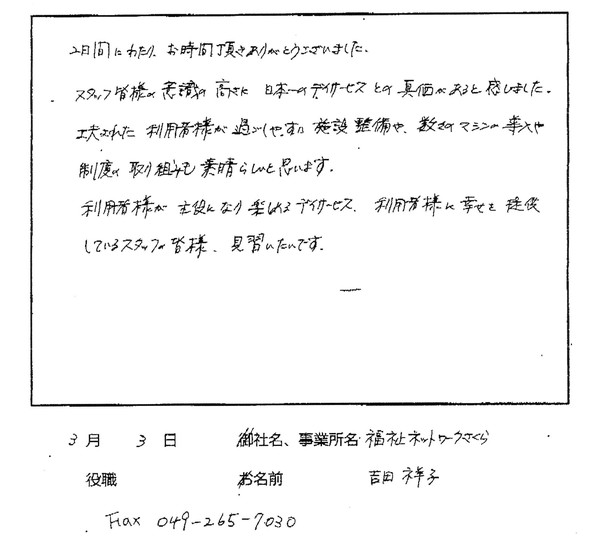 2日間にわたり、お時間頂きありがとうございました。
スタッフ皆様の意識の高さに 日本一のデイサービスとの真価があると感じました。
工夫された 利用者様が過ごしやすい施設整備や、数多のマシンの導入や
制度の取り組みも素晴らしいと思います。
利用者様が主役になり楽しめるデイサービス、利用者様に幸せを提供
しているスタッフの皆様、見習いたいです。
3月 3日 御社名、事業所名 福祉ネットワークさくら
役職 お名前 吉田 祥子
Fax 049-265-7030